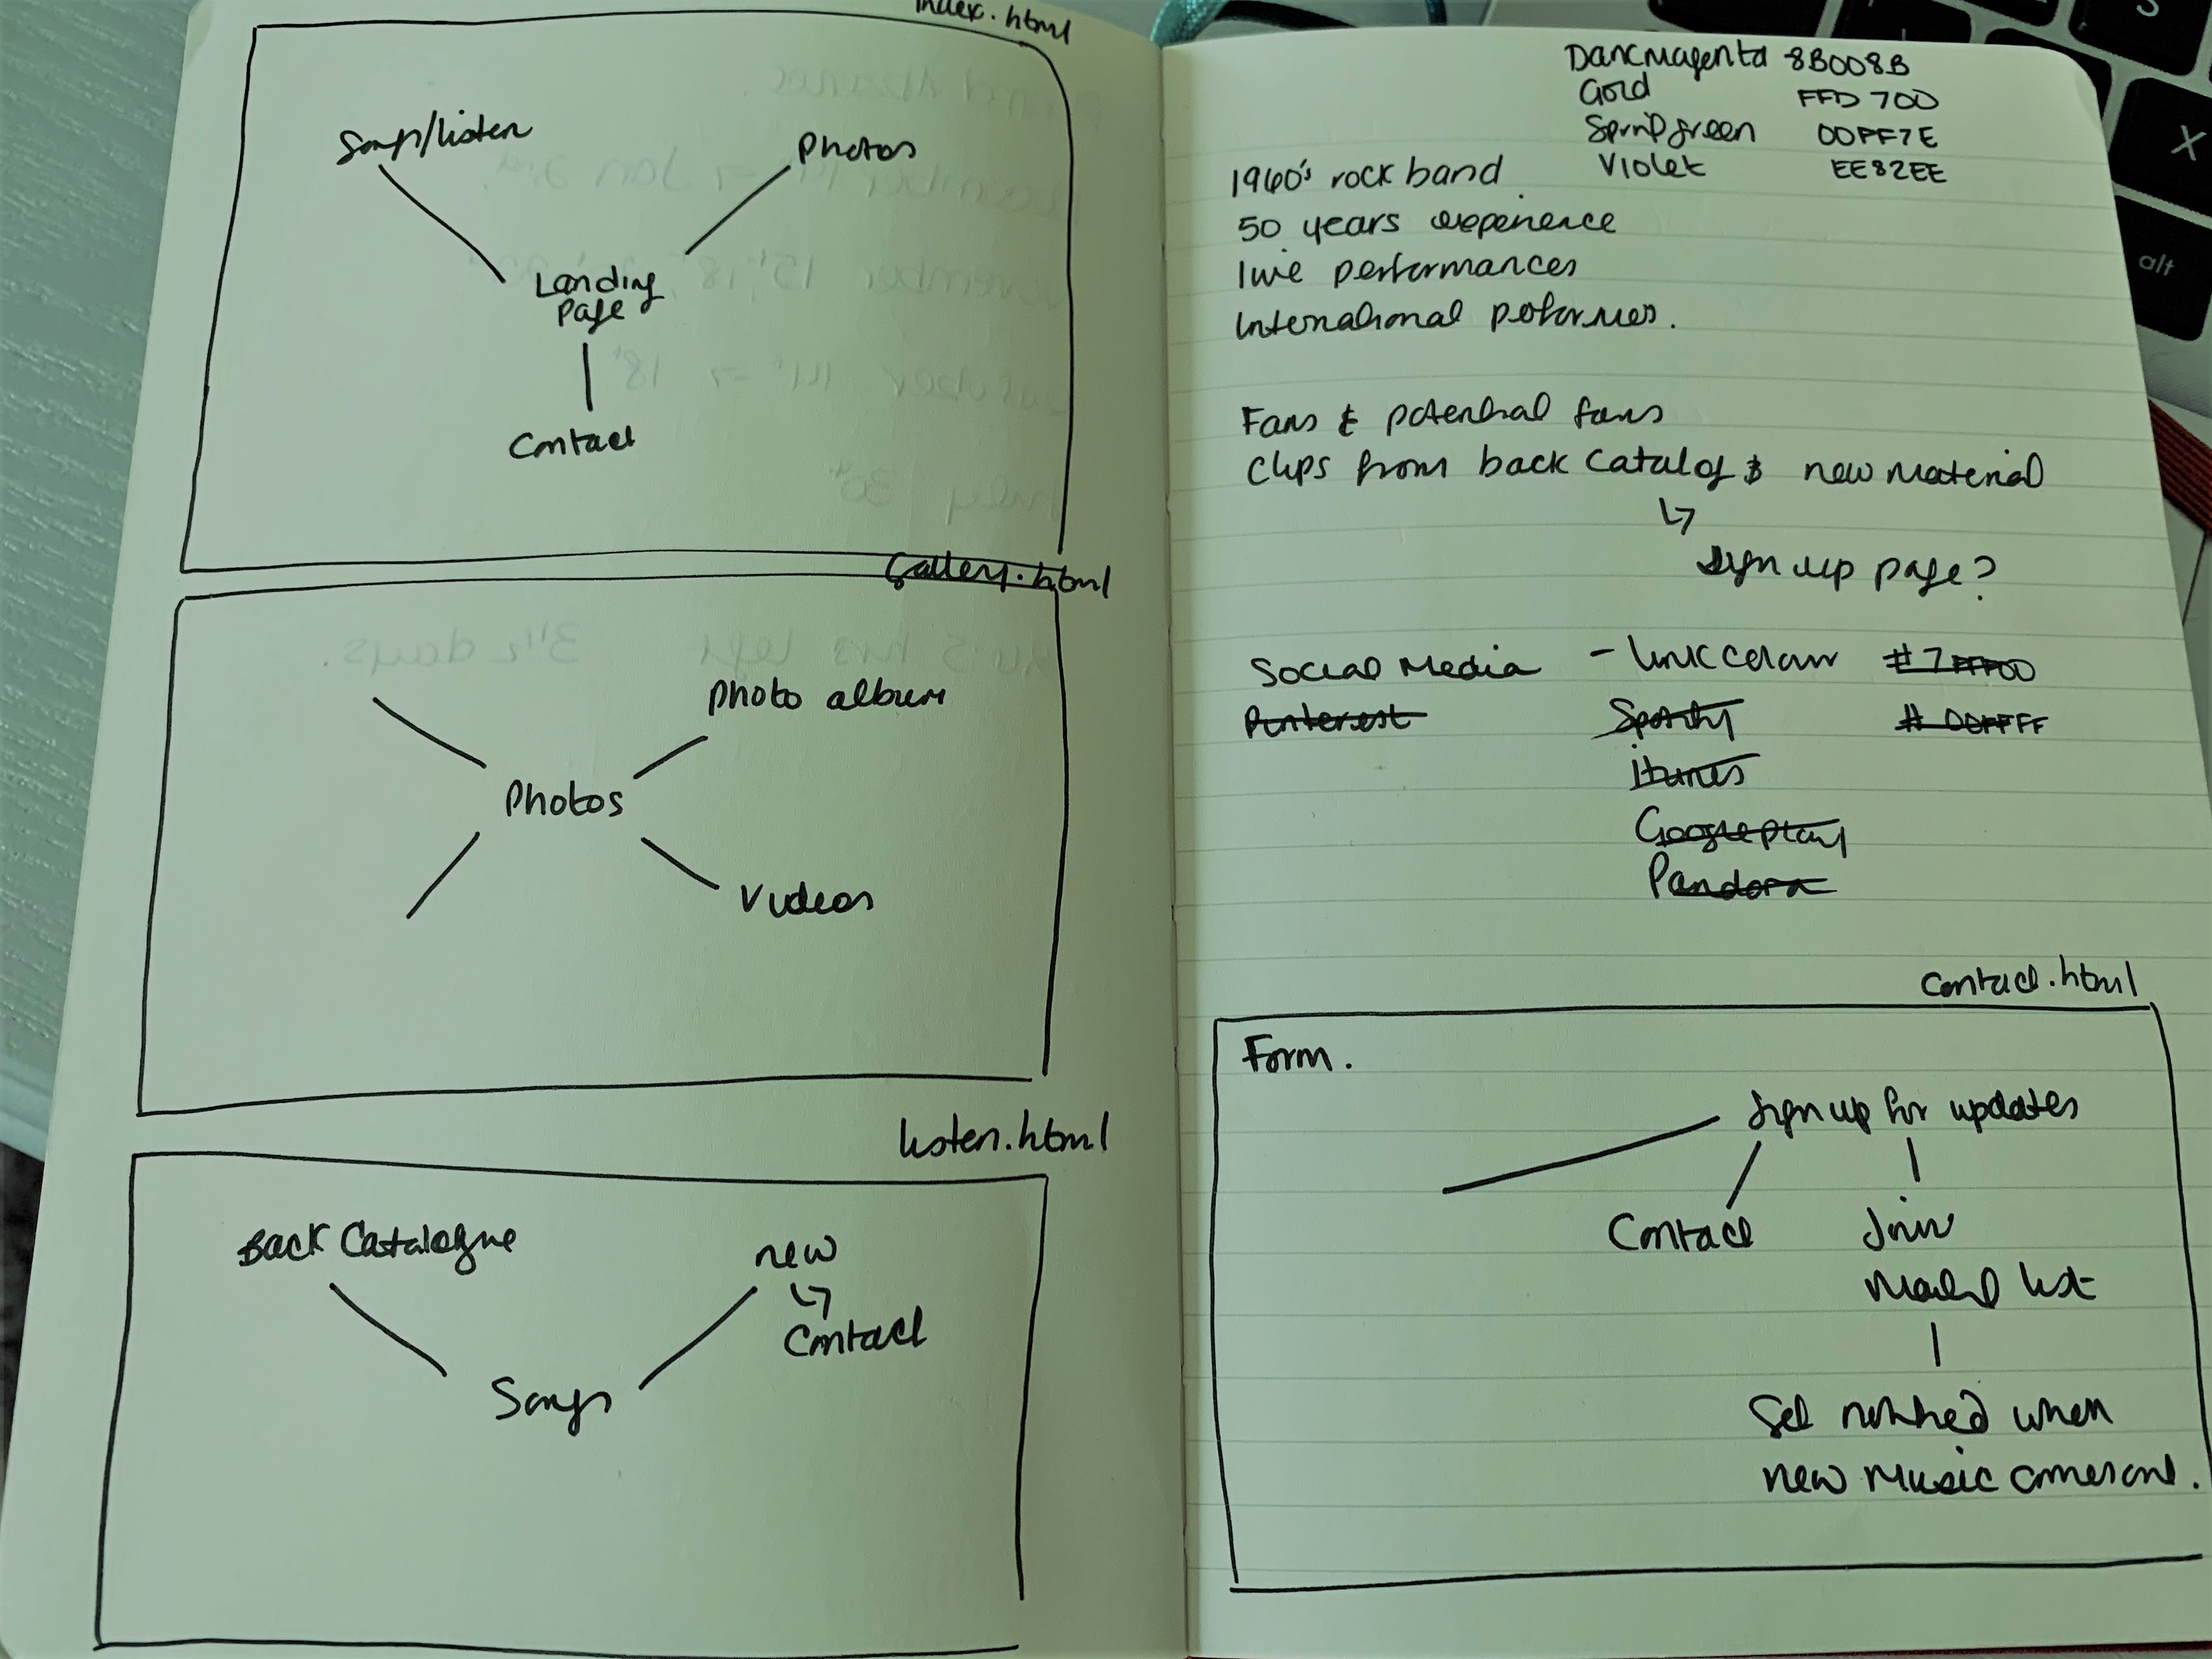 index.html
Songs/listen
Photos
Landing
Page
Contact
Gallery.html
Photo album
Photos
Videos
listen.html
Back Catalogue
new
↳
Contact
Songs
DarkMagenta 8B008B
Gold FFD700
Springgreen 00FF7E
Violet EE82EE
1960's rock band
50 years experience
live performances
International
Fans & potential fans
Clips from back catalog & new material
↳
Sign up page?
Social Media - link colour #7FFF00
Pinterest Spotify #00FFFF
itunes
Google play
Pandora
Contact.html
Form.
Sign up for updates
Contact Join
list
Get notified when
new music comes out.
S
X
alt